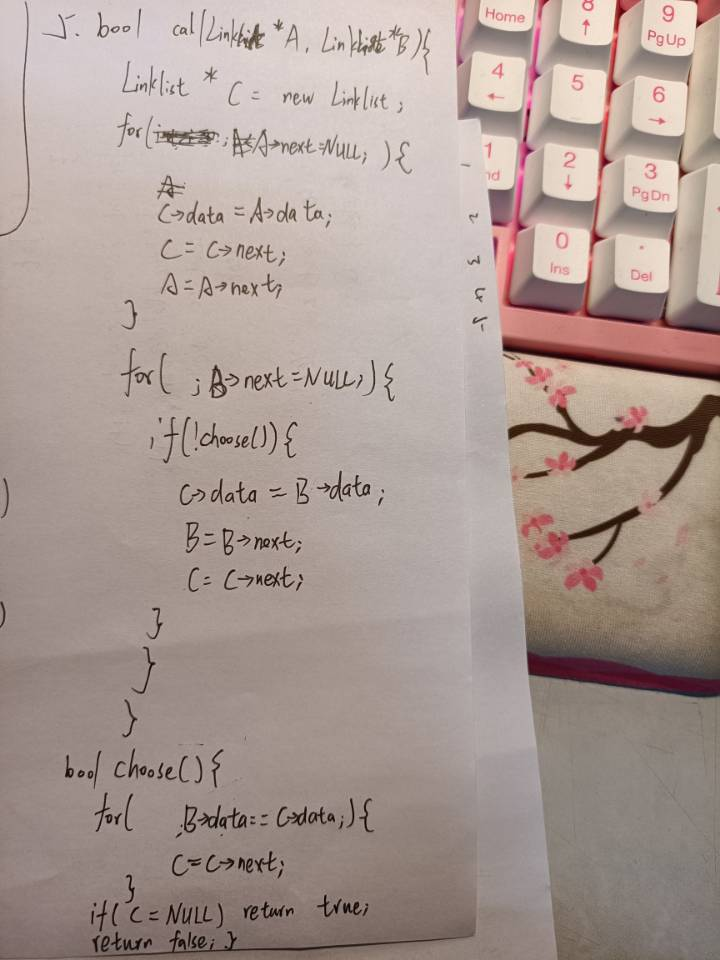 5. bool cal(Linklist *A, Linklist *B){
Linklist * C = new Linklist;
for( ; A→next=NULL; ){
C→data = A→data;
C = C→next;
A = A→next;
}
for( ; B→next=NULL; ){
if(!choose()){
C→data = B→data;
B = B→next;
C = C→next;
}
}
}
bool choose(){
for( ;B→data== C→data;){
C=C→next;
}
if( C = NULL) return true;
return false; }
1
2
3
4
5
)
)
Home
8
↑
9
PgUp
4
←
5
6
→
1
nd
2
↓
3
PgDn
0
Ins
.
Del